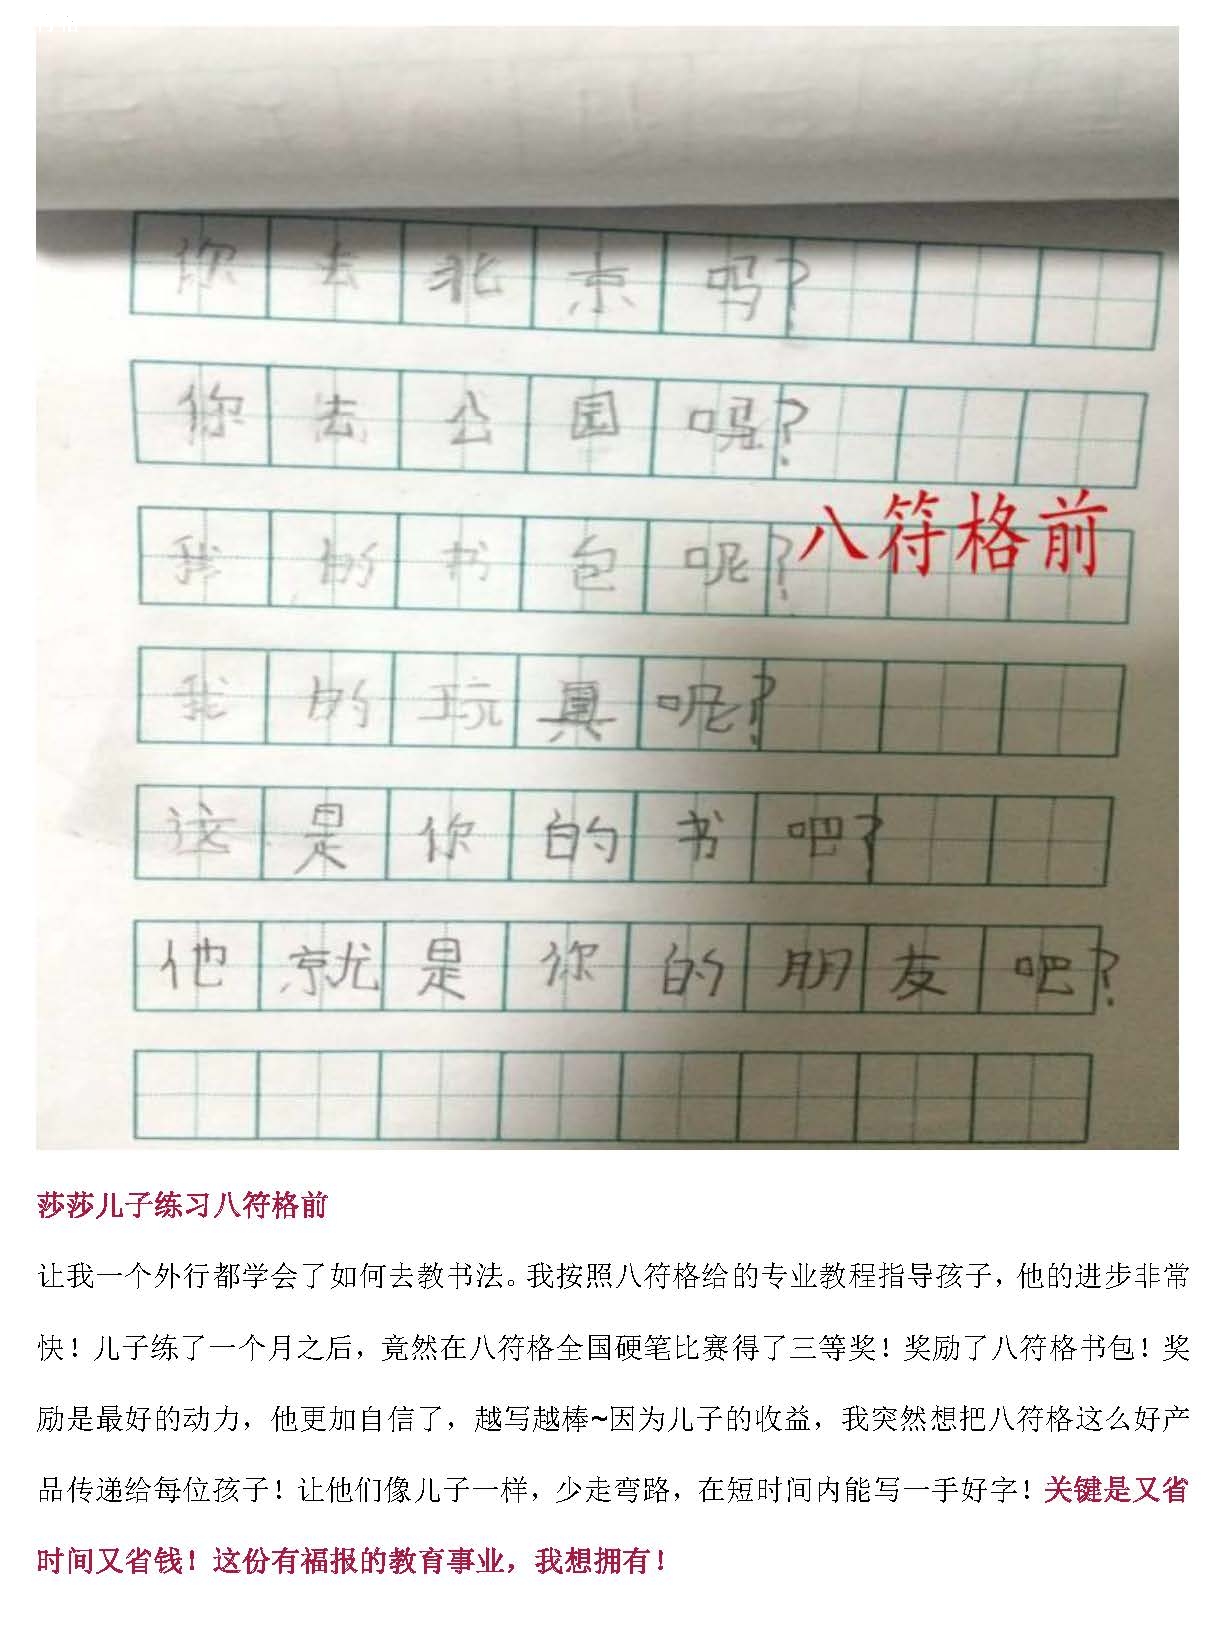 你去北京吗?
你去公园吗?
我的书包呢?
八符格前
我的玩具呢?
这是你的书吧?
他就是你的朋友吧?
莎莎儿子练习八符格前
让我一个外行都学会了如何去教书法。我按照八符格给的专业教程指导孩子，他的进步非常
快！儿子练了一个月之后，竟然在八符格全国硬笔比赛得了三等奖！奖励了八符格书包！奖
励是最好的动力，他更加自信了，越写越棒~因为儿子的收益，我突然想把八符格这么好产
品传递给每位孩子！让他们像儿子一样，少走弯路，在短时间内能写一手好字！关键是又省
时间又省钱！这份有福报的教育事业，我想拥有！